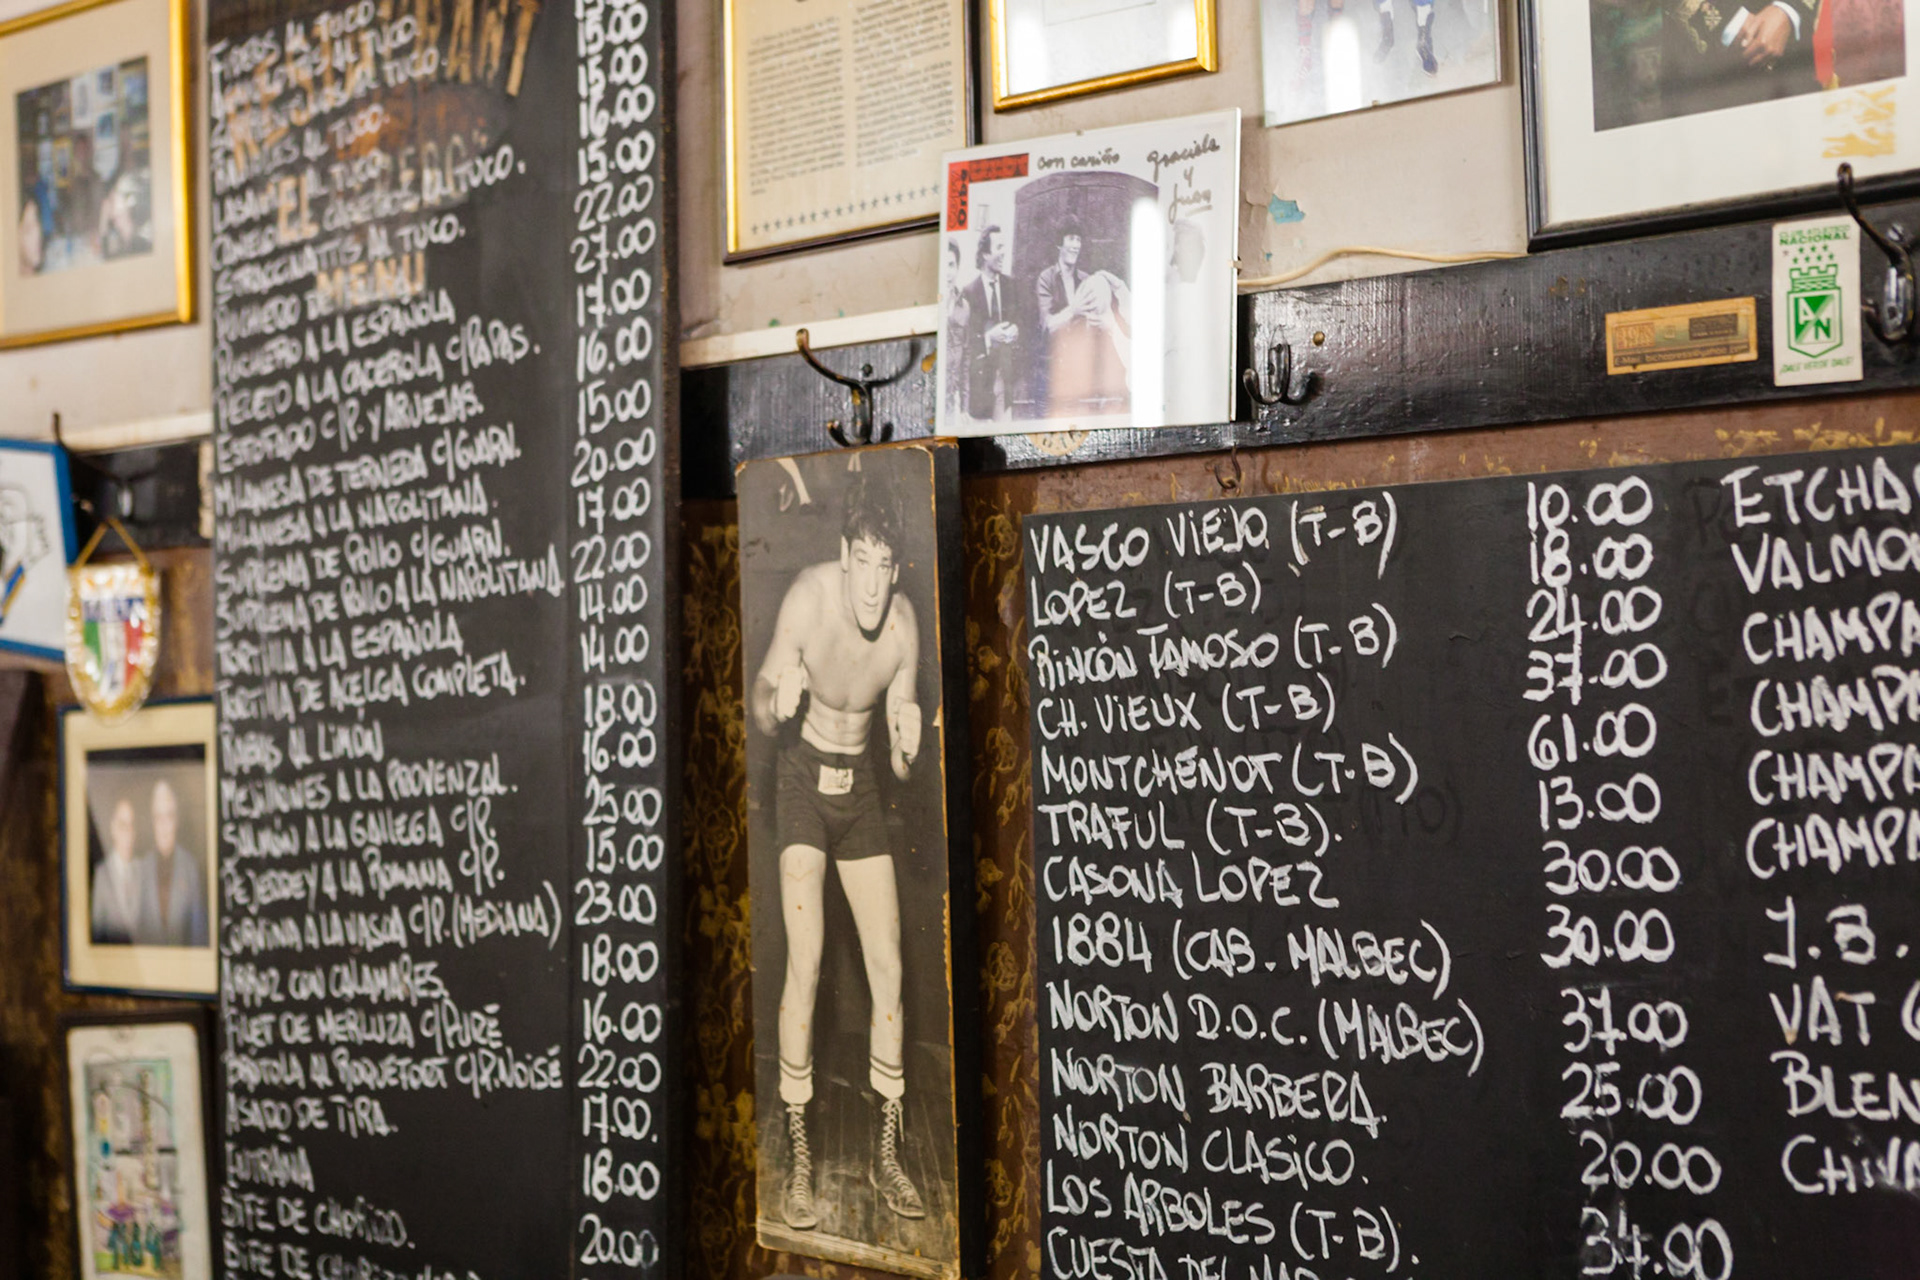 FIDEOS AL TUCO.
AL TUCO.
AL TUCO.
RAVIOLES AL TUCO.
LASAGNA AL TUCO.
CONEJO AL TUCO.
STRACCINATTIS AL TUCO.
MENU
EL
PUCHERO DE
PUCHERO A LA ESPAÑOLA
PECETO A LA CACEROLA C/PAPAS.
ESTOFADO C/P. Y ARVEJAS.
MILANESA DE TERNERA C/GUARN.
MILANESA A LA NAPOLITANA.
SUPREMA DE POLLO C/GUARN.
SUPREMA DE POLLO A LA NAPOLITANA.
TORTILLA A LA ESPAÑOLA
TORTILLA DE ACELGA COMPLETA.
RABAS AL LIMÓN
MEJILLONES A LA PROVENZAL.
SALMÓN A LA GALLEGA C/P.
PEJERREY A LA ROMANA C/P.
CORVINA A LA VASCA C/P. (MEDIANA)
ARROZ CON CALAMARES.
FILET DE MERLUZA C/PURÉ
BROTOLA AL ROQUEFORT C/P. NOISÉ
ASADO DE TIRA.
ENTRAÑA
BIFE DE CHORIZO.
BIFE DE CHORIZO
15.00
15.00
16.00
15.00
22.00
27.00
17.00
16.00
15.00
20.00
17.00
22.00
14.00
14.00
18.00
16.00
25.00
15.00
23.00
18.00
16.00
22.00
17.00.
18.00
20.00
con cariño
Graciela
y
Juan
Orba
CLUB ATLETICO
NACIONAL
AN
¡DALE VERDE DALE!
VASCO VIEJO (T-B) 10.00
LOPEZ (T-B) 18.00
RINCÓN FAMOSO (T-B) 24.00
CH. VIEUX (T-B) 37.00
MONTCHENOT (T-B) 61.00
TRAFUL (T-B). 13.00
CASONA LOPEZ 30.00
1884 (CAB. MALBEC) 30.00
NORTON D.O.C. (MALBEC) 37.00
NORTON BARBERA. 25.00
NORTON CLASICO. 20.00
LOS ARBOLES (T-B). 34.00
CUESTA DEL MAR
ETCHA
VALMO
CHAMPA
CHAMPA
CHAMPA
CHAMPA
J.B.
VAT 6
BLEN
CHIVA
1984